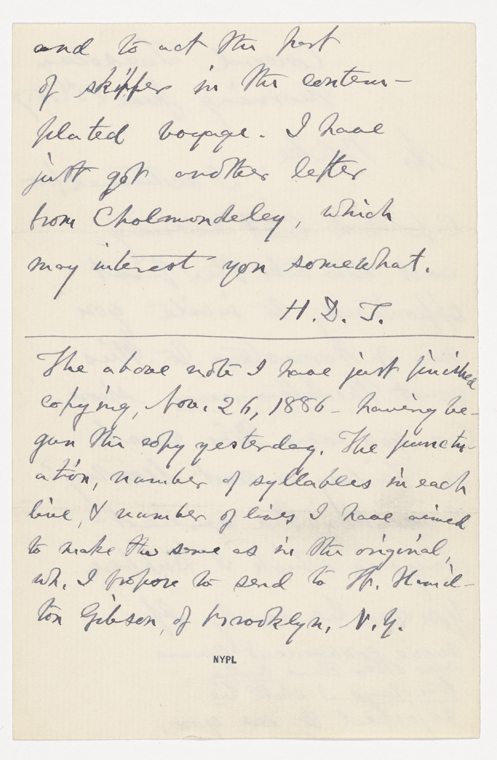 and to act the part
of skipper in the contem-
plated voyage. I have
just got another letter
from Cholmondeley, which
may interest you somewhat.
H. D. T.
The above note I have just finished
copying, Nov. 26, 1886 - having be-
gun the copy yesterday. The punctu-
ation, number of syllables in each
line, & number of lines I have aimed
to make the same as in the original,
wh. I propose to send to W. Hamil-
ton Gibson, of Brooklyn, N.Y.
NYPL